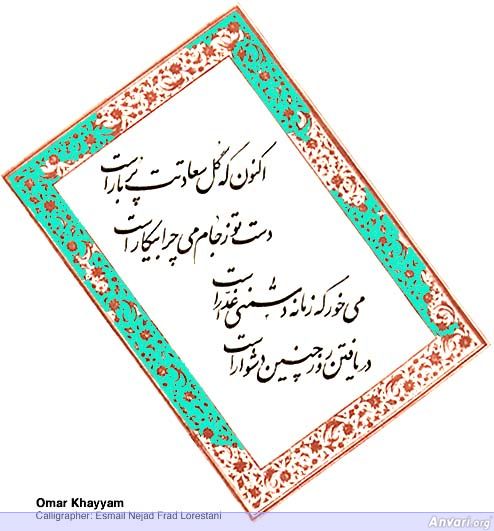 اکنون که گل سعادتت پر بار است
دست تو ز جام می چرا بیکار است
می خور که زمانه دشمنی غدار است
دریافتن روز چنین دشوار است
Omar Khayyam
Calligrapher: Esmail Nejad Frad Lorestani
Anvari.org